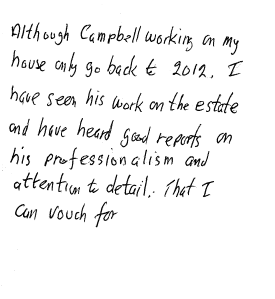 Although Campbell working on my
house only go back to 2012. I
have seen his work on the estate
and have heard good reports on
his professionalism and
attention to detail. That I
can vouch for